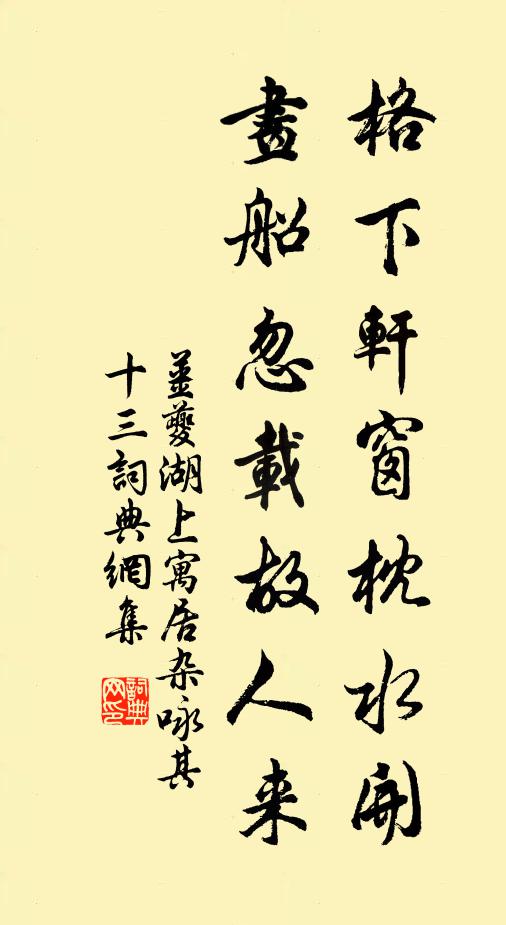 格下軒窗枕水開
畫船忽載故人来
姜夔湖上寓居杂咏其
十三詞典網集
詞典网印